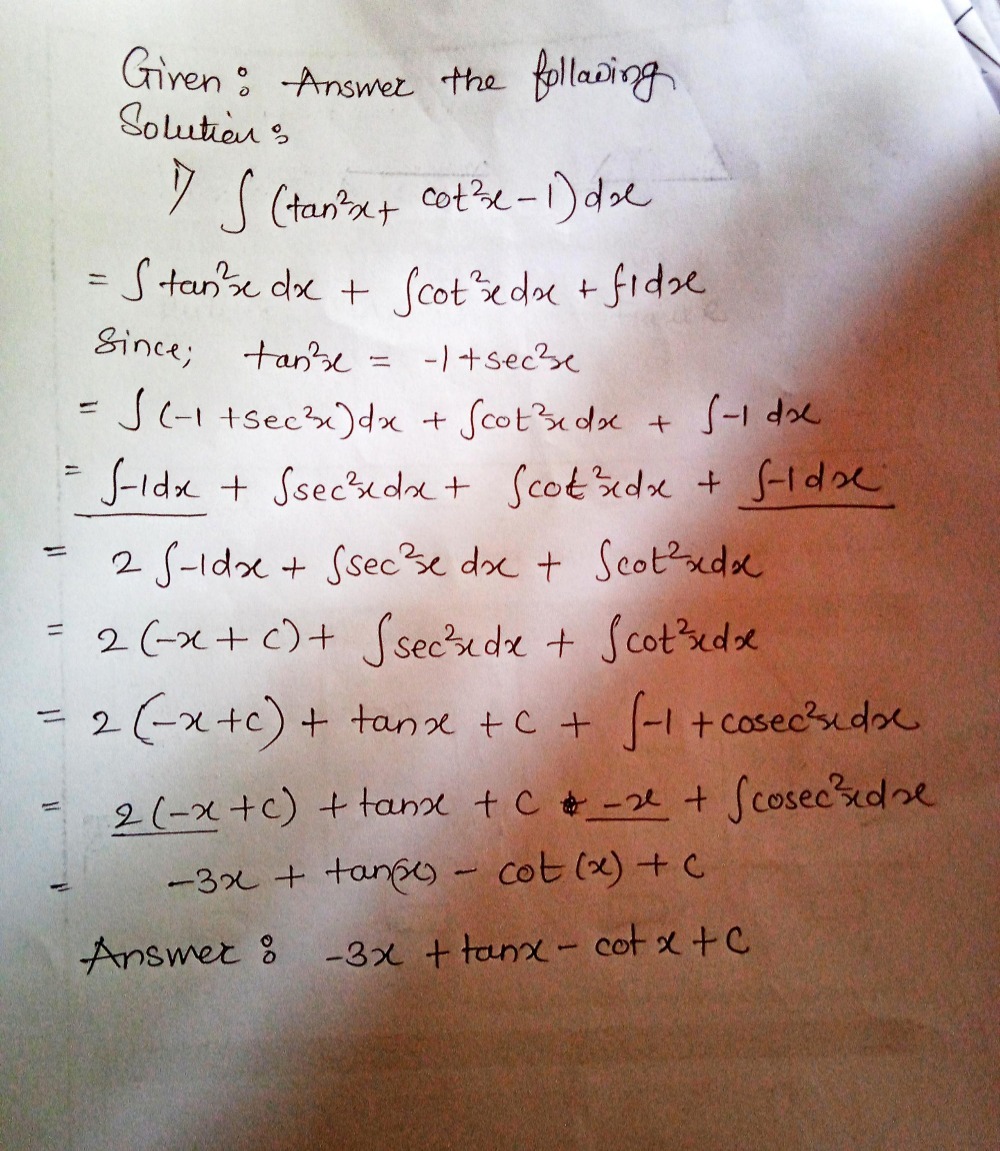 Given : Answer the following
Solution :
1) ∫ (tan²x + cot²x - 1) dx
= ∫ tan²x dx + ∫cot²x dx + ∫-1dx
Since; tan²x = -1 + sec²x
= ∫ (-1 + sec²x)dx + ∫cot²x dx + ∫-1 dx
= ∫-1dx + ∫sec²x dx + ∫cot²x dx + ∫-1dx
= 2 ∫-1dx + ∫sec²x dx + ∫cot²x dx
= 2 (-x + c) + ∫sec²x dx + ∫cot²x dx
= 2 (-x + c) + tanx + c + ∫-1 + cosec²x dx
= 2 (-x + c) + tanx + c + -x + ∫cosec²x dx
= -3x + tan(x) - cot (x) + c
Answer : -3x + tanx - cot x + c